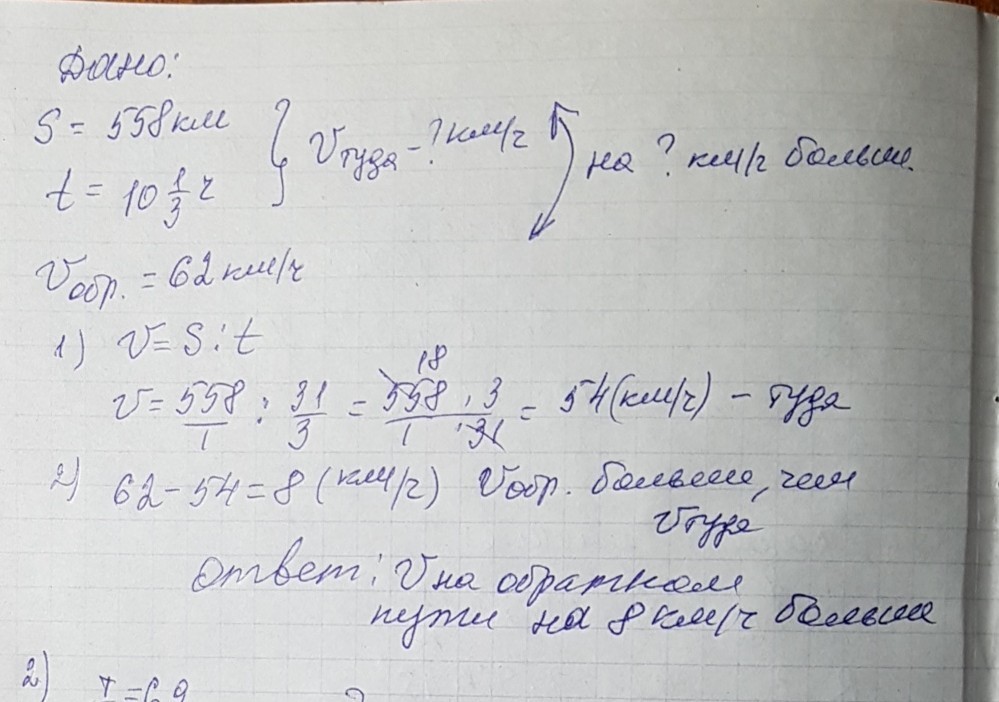 Дано:
S = 558 км } Vтуда - ? км/ч на ? км/г больше
t = 10 1/3 ч
Vобр. = 62 км/ч
1) V = S : t
V = 558/1 : 31/3 = 558 18 · 3 / 1 · 31 = 54 (км/ч) - туда
2) 62 - 54 = 8 (км/ч) Vобр. больше, чем
Vтуда
Ответ: V на обратном
пути на 8 км/ч больше
2)